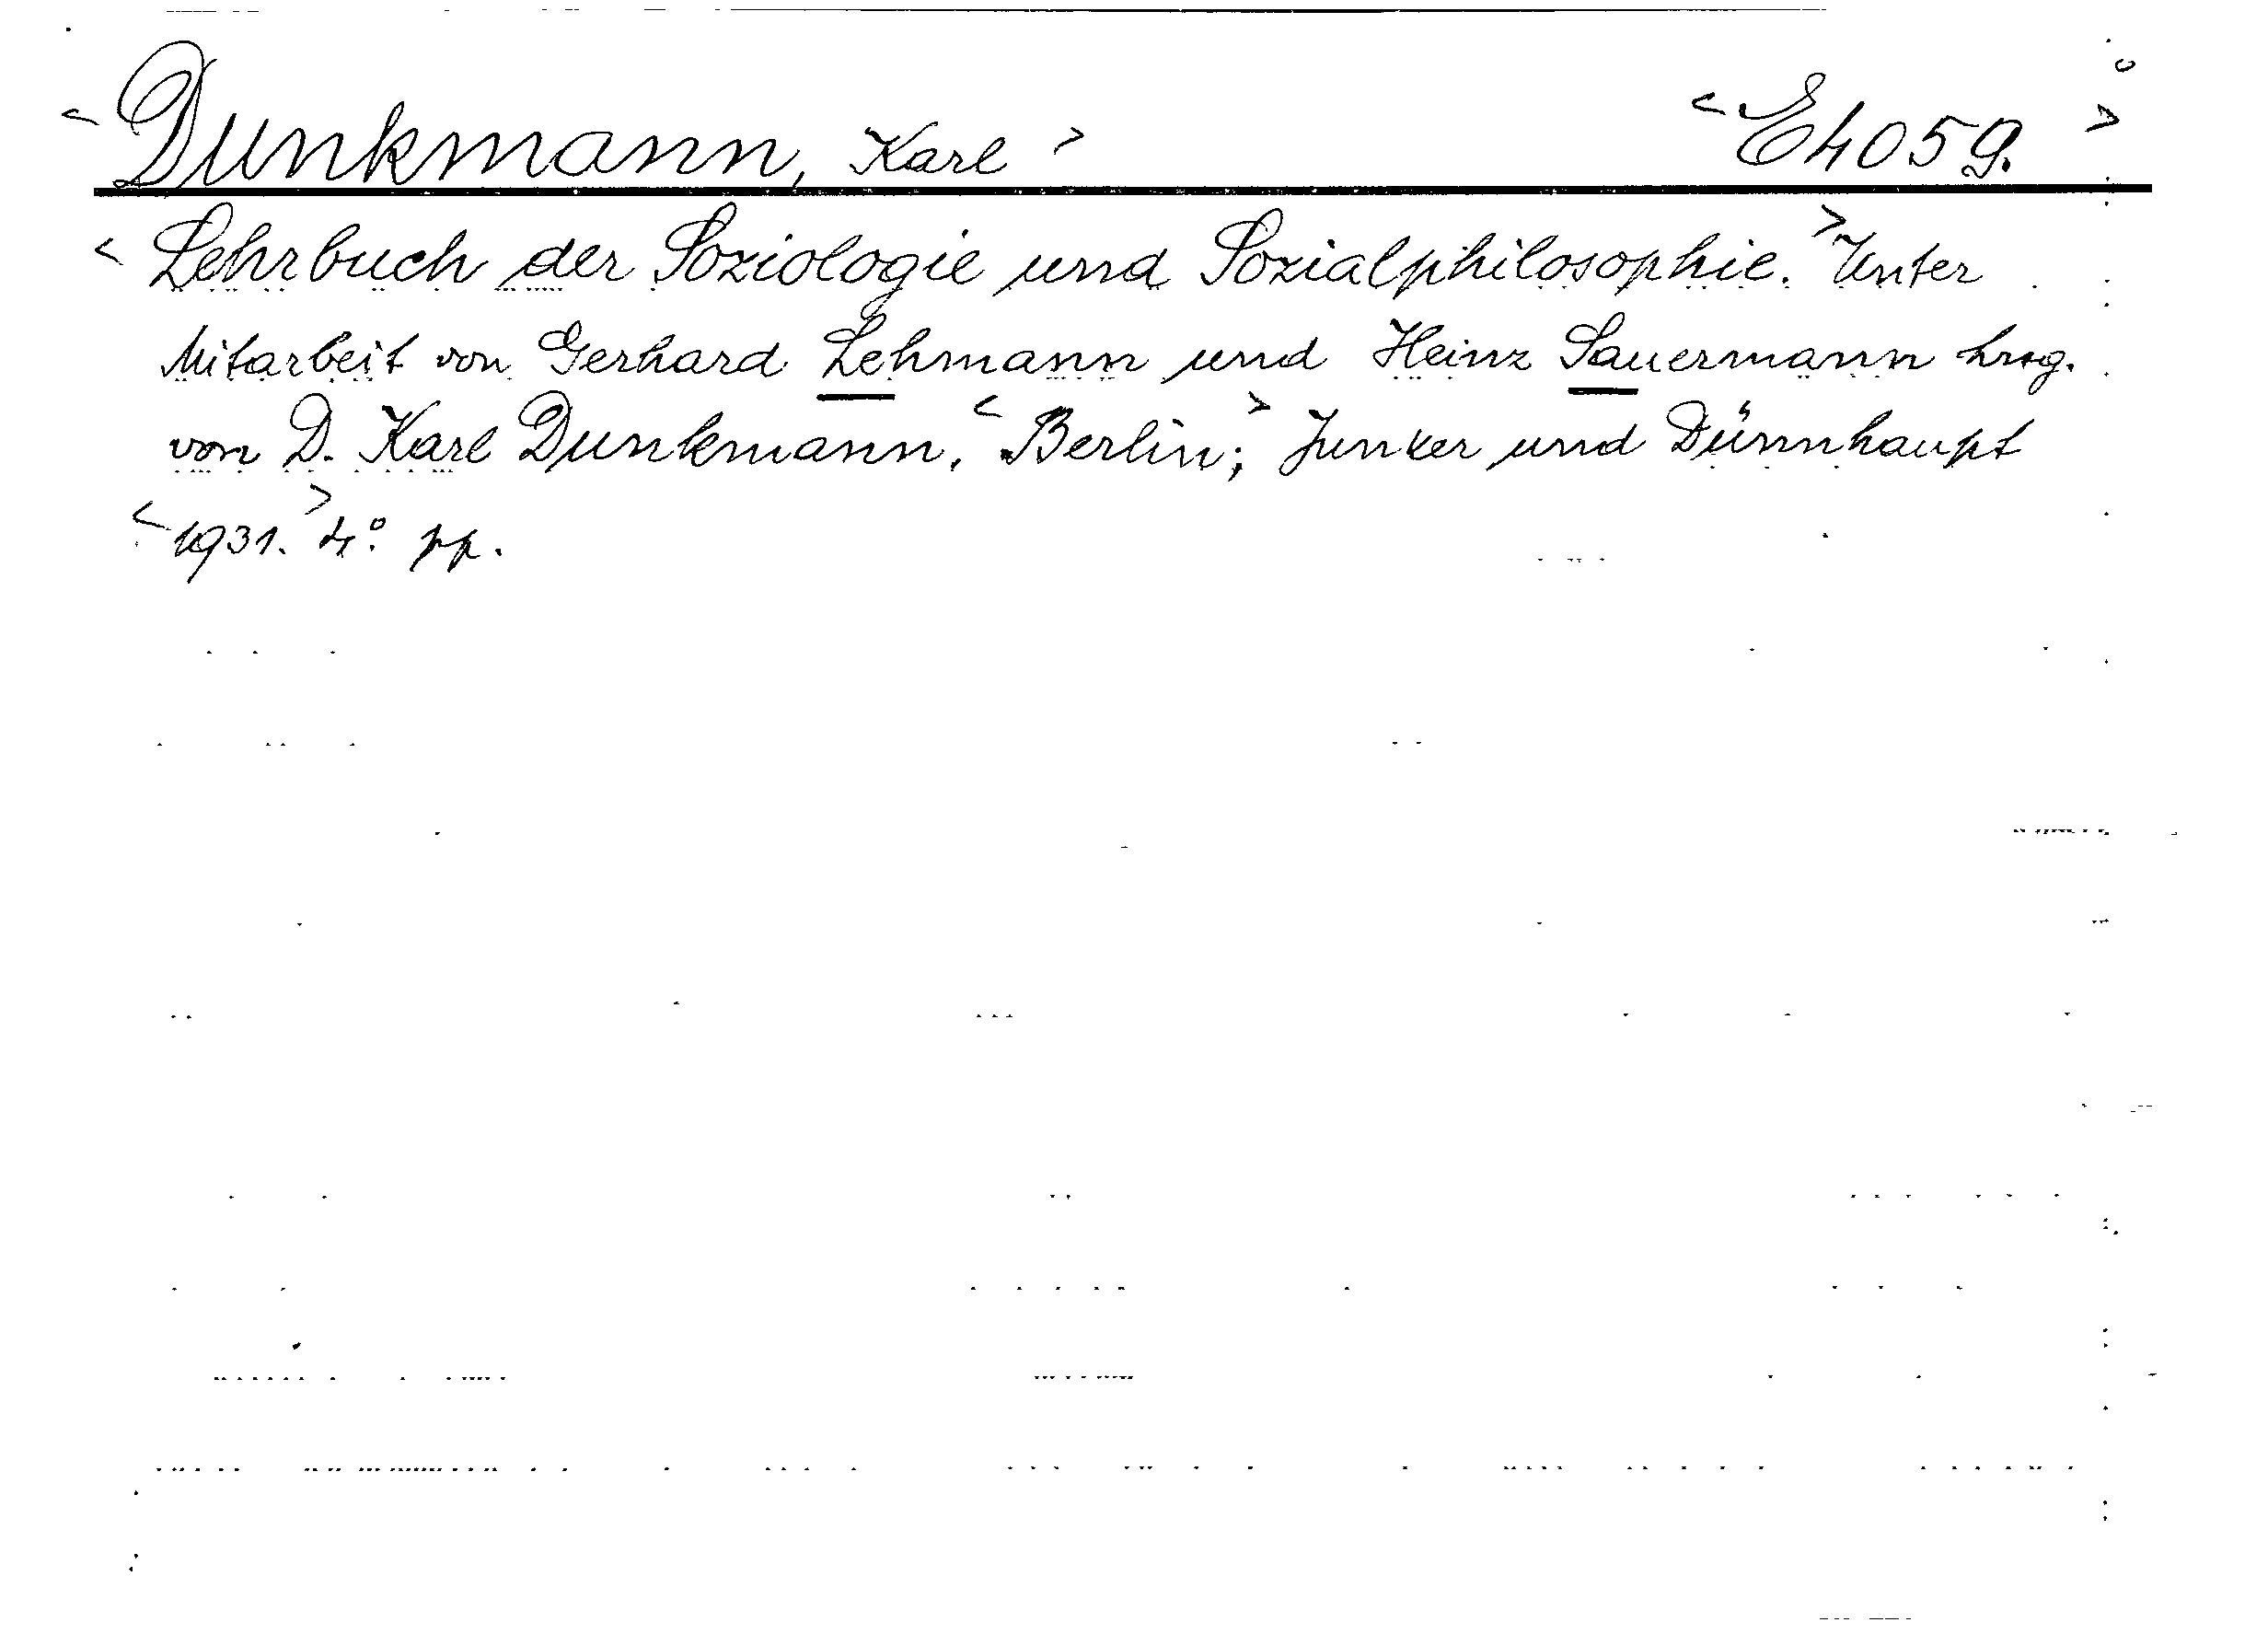 < Dunkmann, Karl > < E4059. >
< Lehrbuch der Soziologie und Sozialphilosophie. > Unter
Mitarbeit von Gerhard Lehmann und Heinz Sauermann hrsg.
von D. Karl Dunkmann. < Berlin; > Junker und Dünnhaupt
< 1931. > 4° pp.